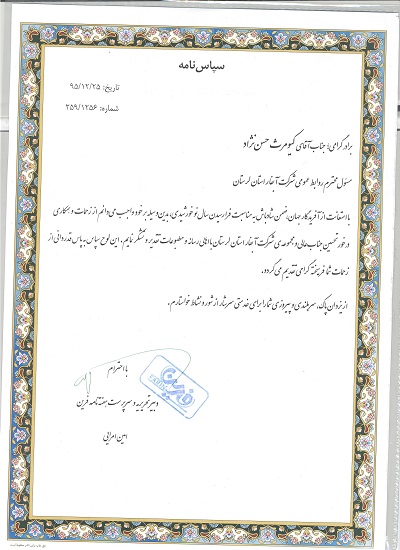 سپاس‌نامه
تاریخ: ۹۵/۱۲/۲۵
شماره: ۲۵۹/۱۲۵۶
برادر گرامی؛ جناب آقای کیومرث حسن نژاد
مسئول محترم روابط عمومی شرکت آبفار استان لرستان
با استعانت از آفریدگار جهان، ضمن شادباش به مناسبت فرا رسیدن سال نو خورشیدی، بدین وسیله بر خود واجب می‌دانم از زحمات و همکاری
درخور تحسین جناب عالی و مجموعه‌ی شرکت آبفار استان لرستان با اهالی رسانه و مطبوعات تقدیر و تشکر نمایم. این لوح سپاس به پاس قدردانی از
زحمات شما فرهیخته گرامی تقدیم می گردد.
از یزدان پاک، سربلندی و پیروزی شما را برای خدمتی سرشار از شور و نشاط خواستارم.
با احترام
فرین
دبیر تحریریه و سرپرست هفته نامه فرین
امین امرایی